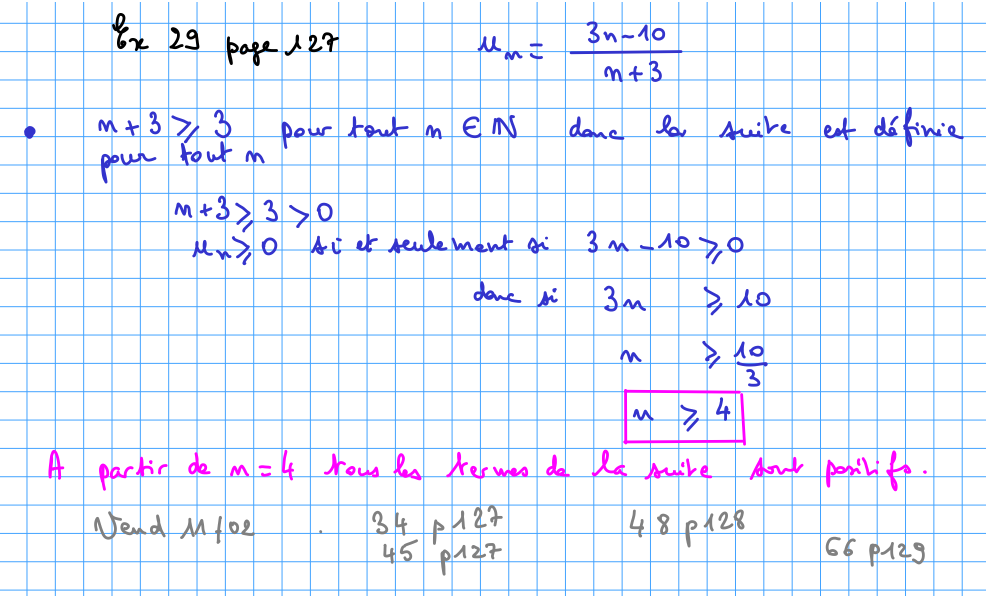 Ex 29 page 127 u_n = (3n-10)/(n+3)
• n+3 ⩾ 3 pour tout n ∈ ℕ donc la suite est définie
pour tout n
n+3 ⩾ 3 > 0
u_n ⩾ 0 si et seulement si 3n-10 ⩾ 0
donc si 3n ⩾ 10
n ⩾ 10/3
n ⩾ 4
A partir de n=4 tous les termes de la suite sont positifs.
Vend 11/02 . 34 p127 48 p128
45 p127 66 p129